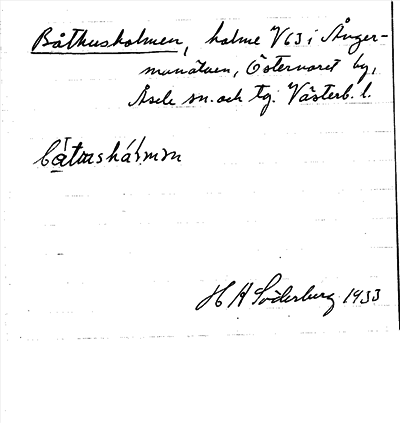 Båthusholmen, holme V63 i Ånger-
manälven, Östernoret by,
Åsele sn. och tg. Västerb. l.
H A Söderburg 1933